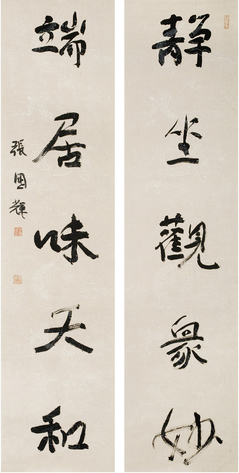 靜坐觀衆妙
端居味天和
張國輝